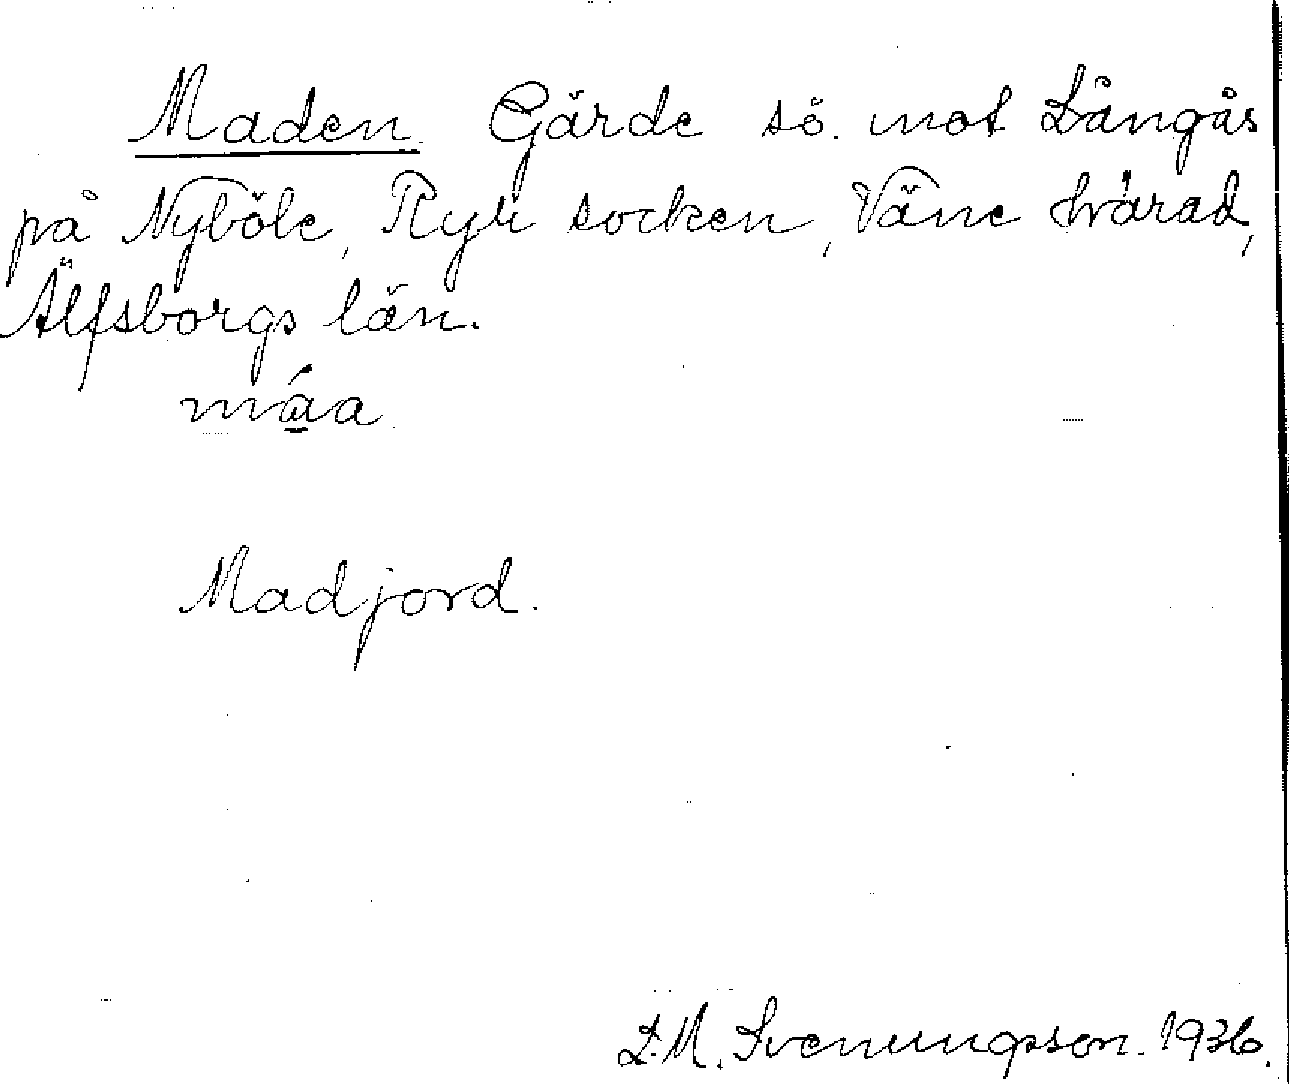 Maden Gärde sö. mot Långås
på Nyböle, Ryr socken, Väne härad,
Älfsborgs län.
máa
Madjord.
L.M. Svenungsson. 1936.